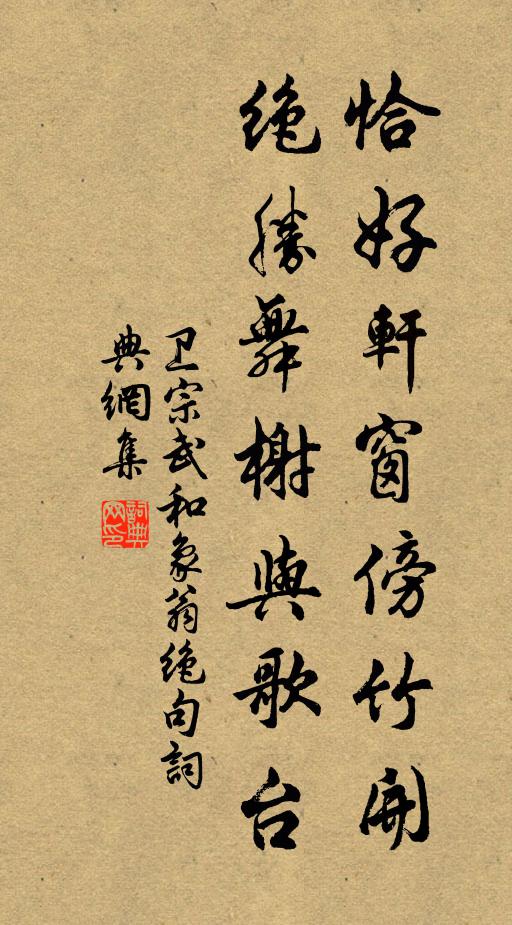 恰好軒窗傍竹開
绝勝舞榭與歌台
卫宗武和象翁绝句詞
典網集
詞典網印